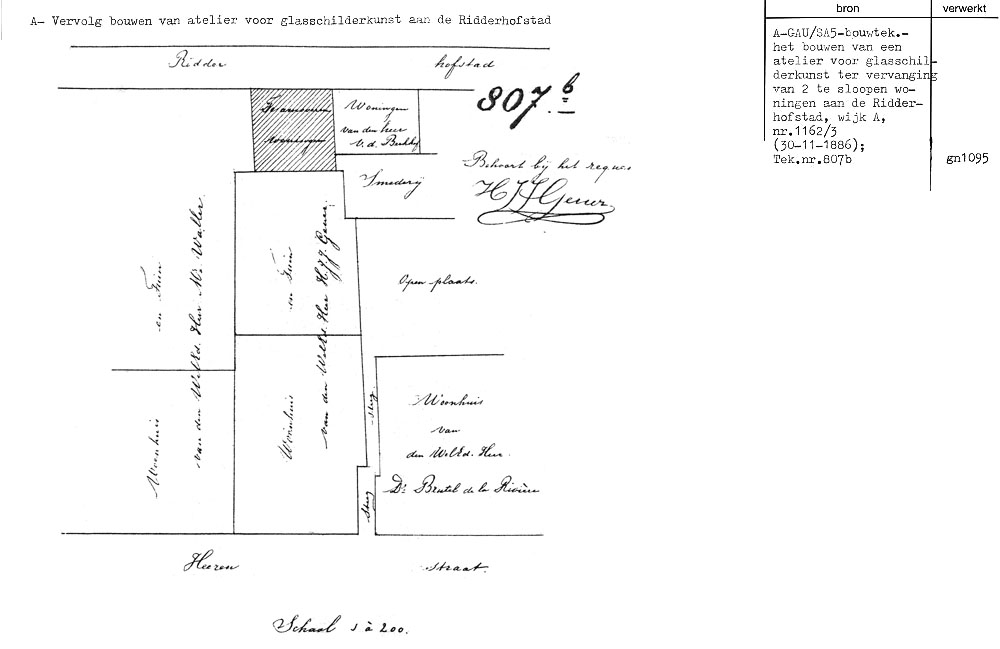 A- Vervolg bouwen van atelier voor glasschilderkunst aan de Ridderhofstad
bron
verwerkt
A-GAU/SA5-bouwtek.-
het bouwen van een
atelier voor glasschil-
derkunst ter vervanging
van 2 te sloopen wo-
ningen aan de Ridder-
hofstad, wijk A,
nr.1162/3
(30-11-1886);
Tek.nr.807b
gn1095
Ridder hofstad
807.b
woningen
Woningen
van den heer
Behoort bij het reques
Smederij
en Tuin
van den Weled. Heer Mr. Waller.
en Tuin
van den Weled. Heer H.J.J. Geuer.
Open plaats.
Woonhuis
Woonhuis
Steeg
Steeg
Woonhuis
van
den WelEd. Heer
Dr. Brutel de la Rivière
Heeren straat.
Schaal 1 à 200.